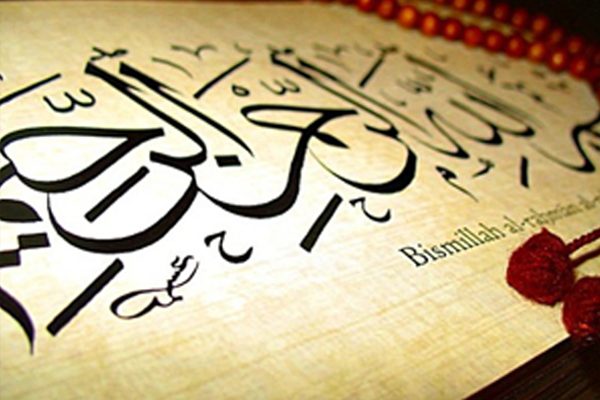 الله الرحمن الرحيم
Bismillah al-rahman